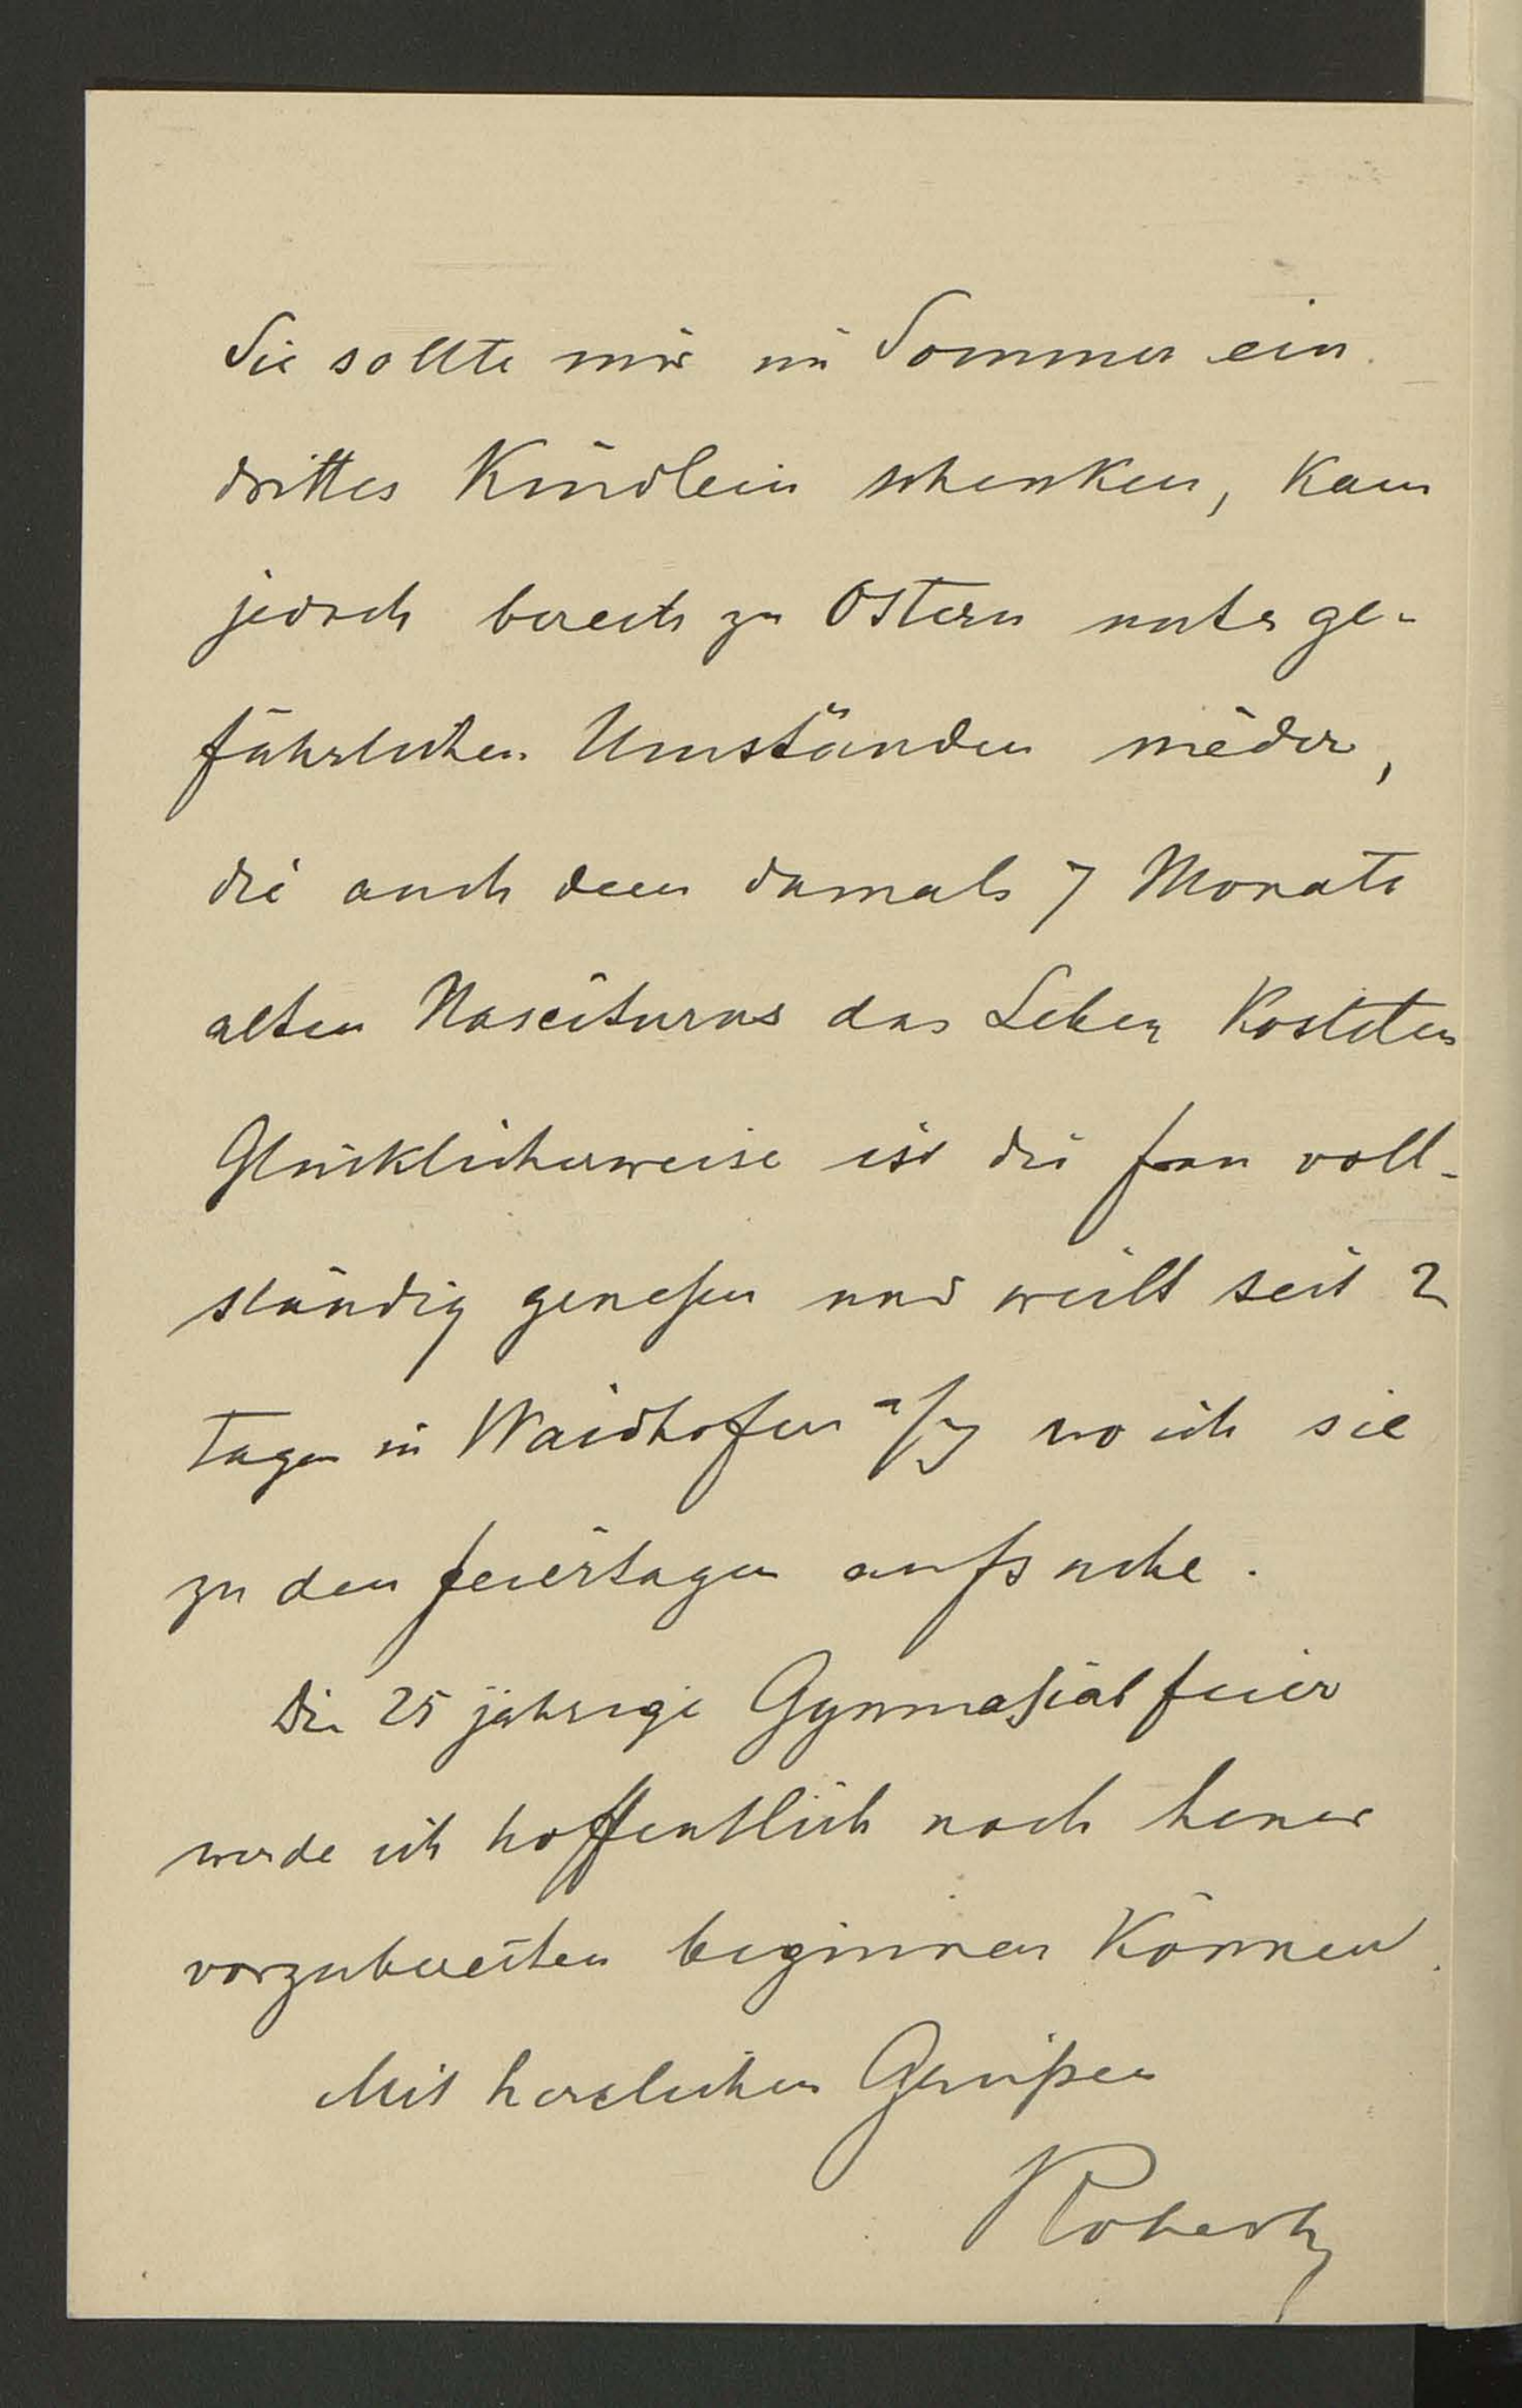 Sie sollte mir im Sommer ein
drittes Kindlein schenken, kam
jedoch bereits zu Ostern unter ge-
fährlichen Umständen nieder,
die auch dem damals 7 Monate
alten Nasciturus das Leben kosteten
Glücklicherweise ist die Frau voll-
ständig genesen und weilt seit 2
Tagen in Waidhofen a/y wo ich sie
zu den Feiertagen aufsuche.
Die 25 jährige Gymnasialfeier
werde ich hoffentlich noch heuer
vorzubereiten beginnen können.
Mit herzlichen Grüßen
Robert